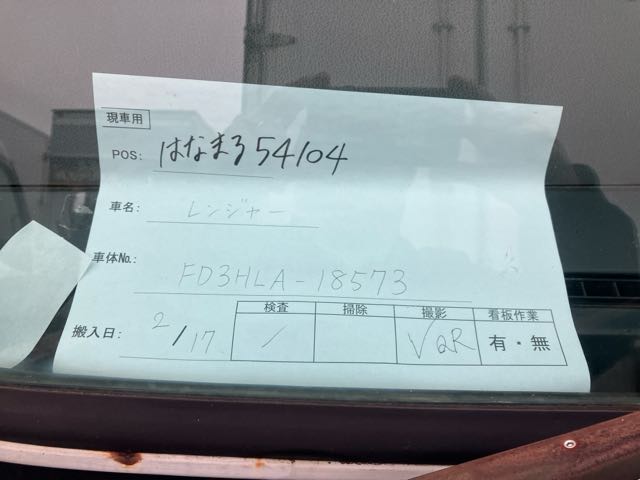 現車用
POS: はなまる54104
車名: レンジャー
車体No. FD3HLA-18573
検査 掃除 撮影 看板作業
搬入日: 2/17 / √QR 有・無